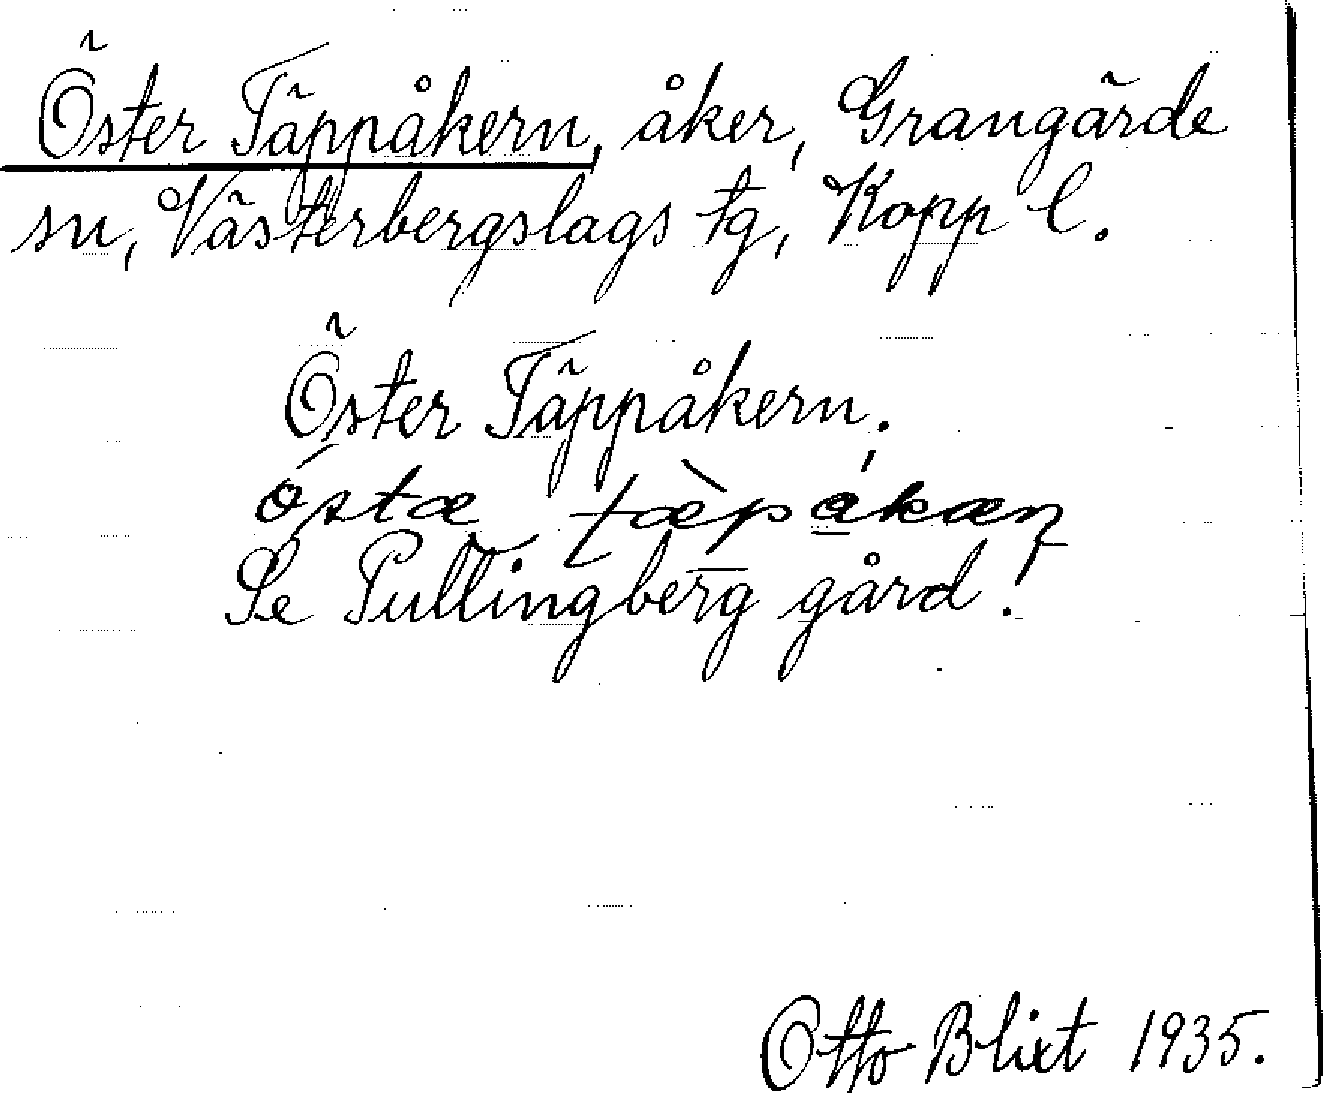 Öster Täppåkern, åker, Grangärde
sn, Västerbergslags tg, Kopp l.
Öster Täppåkern.
östæ tæ̀påkæn
Se Pullingberg gård!
Otto Blixt 1935.